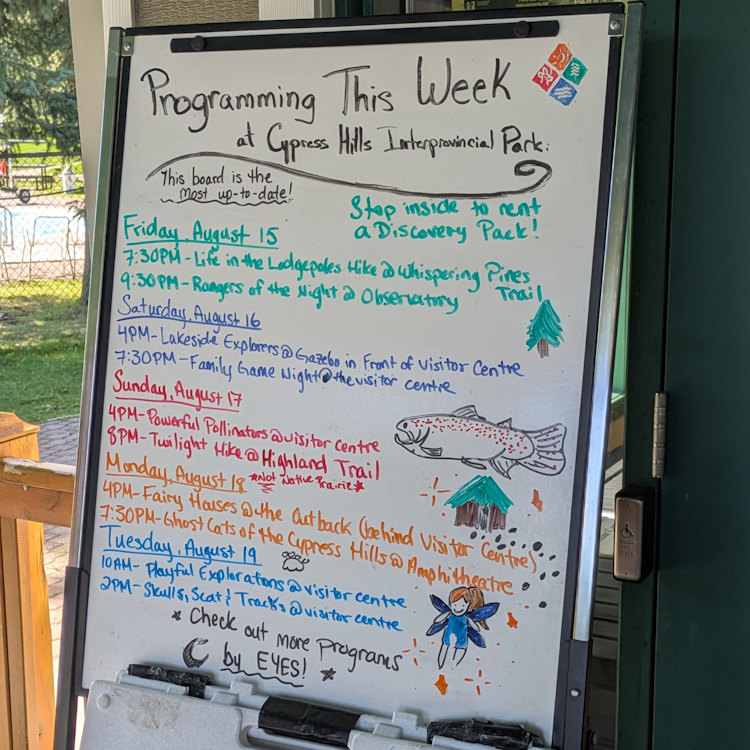 Programming This Week
at Cypress Hills Interprovincial Park:
This board is the
most up-to-date!
Stop inside to rent
a Discovery Pack!
Friday, August 15
7:30PM - Life in the Lodgepoles Hike @ Whispering Pines
Trail
9:30PM - Rangers of the Night @ Observatory
Saturday, August 16
4PM - Lakeside Explorers @ Gazebo in Front of Visitor Centre
7:30PM - Family Game Night @ the visitor centre
Sunday, August 17
4PM - Powerful Pollinators @ visitor centre
8PM - Twilight Hike @ Highland Trail
*Not Native Prairie*
Monday, August 18
4PM - Fairy Houses @ the Outback (behind Visitor Centre)
7:30PM - Ghost Cats of the Cypress Hills @ Amphitheatre
Tuesday, August 19
10AM - Playful Explorations @ visitor centre
2PM - Skulls, Scat & Tracks @ visitor centre
* Check out more programs
by EYES! *
PUSH
TO
OPEN